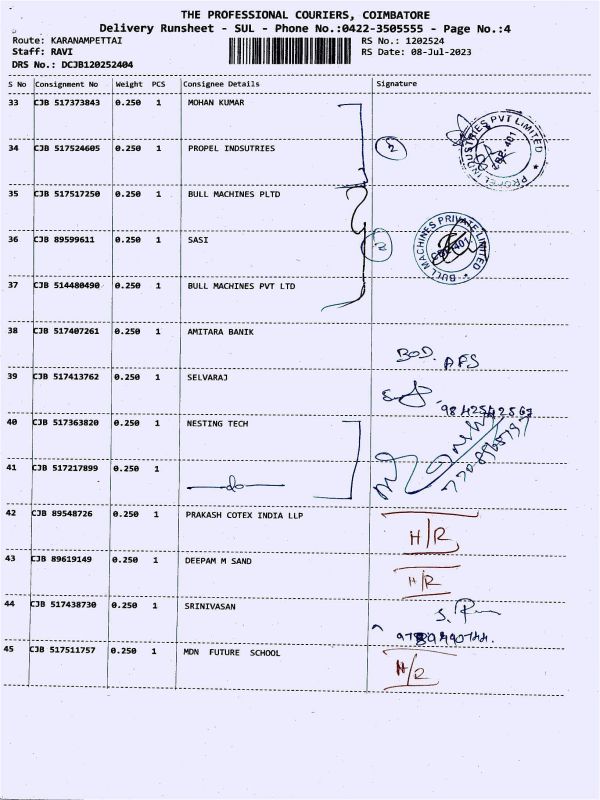 THE PROFESSIONAL COURIERS, COIMBATORE
Delivery Runsheet - SUL - Phone No.:0422-3505555 - Page No.:4
Route: KARANAMPETTAI RS No.: 1202524
Staff: RAVI RS Date: 08-Jul-2023
DRS No.: DCJB120252404
S No Consignment No Weight PCS Consignee Details Signature
33 CJB 517373843 0.250 1 MOHAN KUMAR
34 CJB 517524605 0.250 1 PROPEL INDSUTRIES 2 PROPEL INDUSTRIES PVT LIMITED
35 CJB 517517250 0.250 1 BULL MACHINES PLTD
36 CJB 89599611 0.250 1 SASI 2 BULL MACHINES PRIVATE LIMITED
37 CJB 514480490 0.250 1 BULL MACHINES PVT LTD
38 CJB 517407261 0.250 1 AMITARA BANIK BOD. AFS
39 CJB 517413762 0.250 1 SELVARAJ
40 CJB 517363820 0.250 1 NESTING TECH
41 CJB 517217899 0.250 1 do
42 CJB 89548726 0.250 1 PRAKASH COTEX INDIA LLP H/R
43 CJB 89619149 0.250 1 DEEPAM M SAND H/R
44 CJB 517438730 0.250 1 SRINIVASAN
45 CJB 517511757 0.250 1 MDN FUTURE SCHOOL H/R